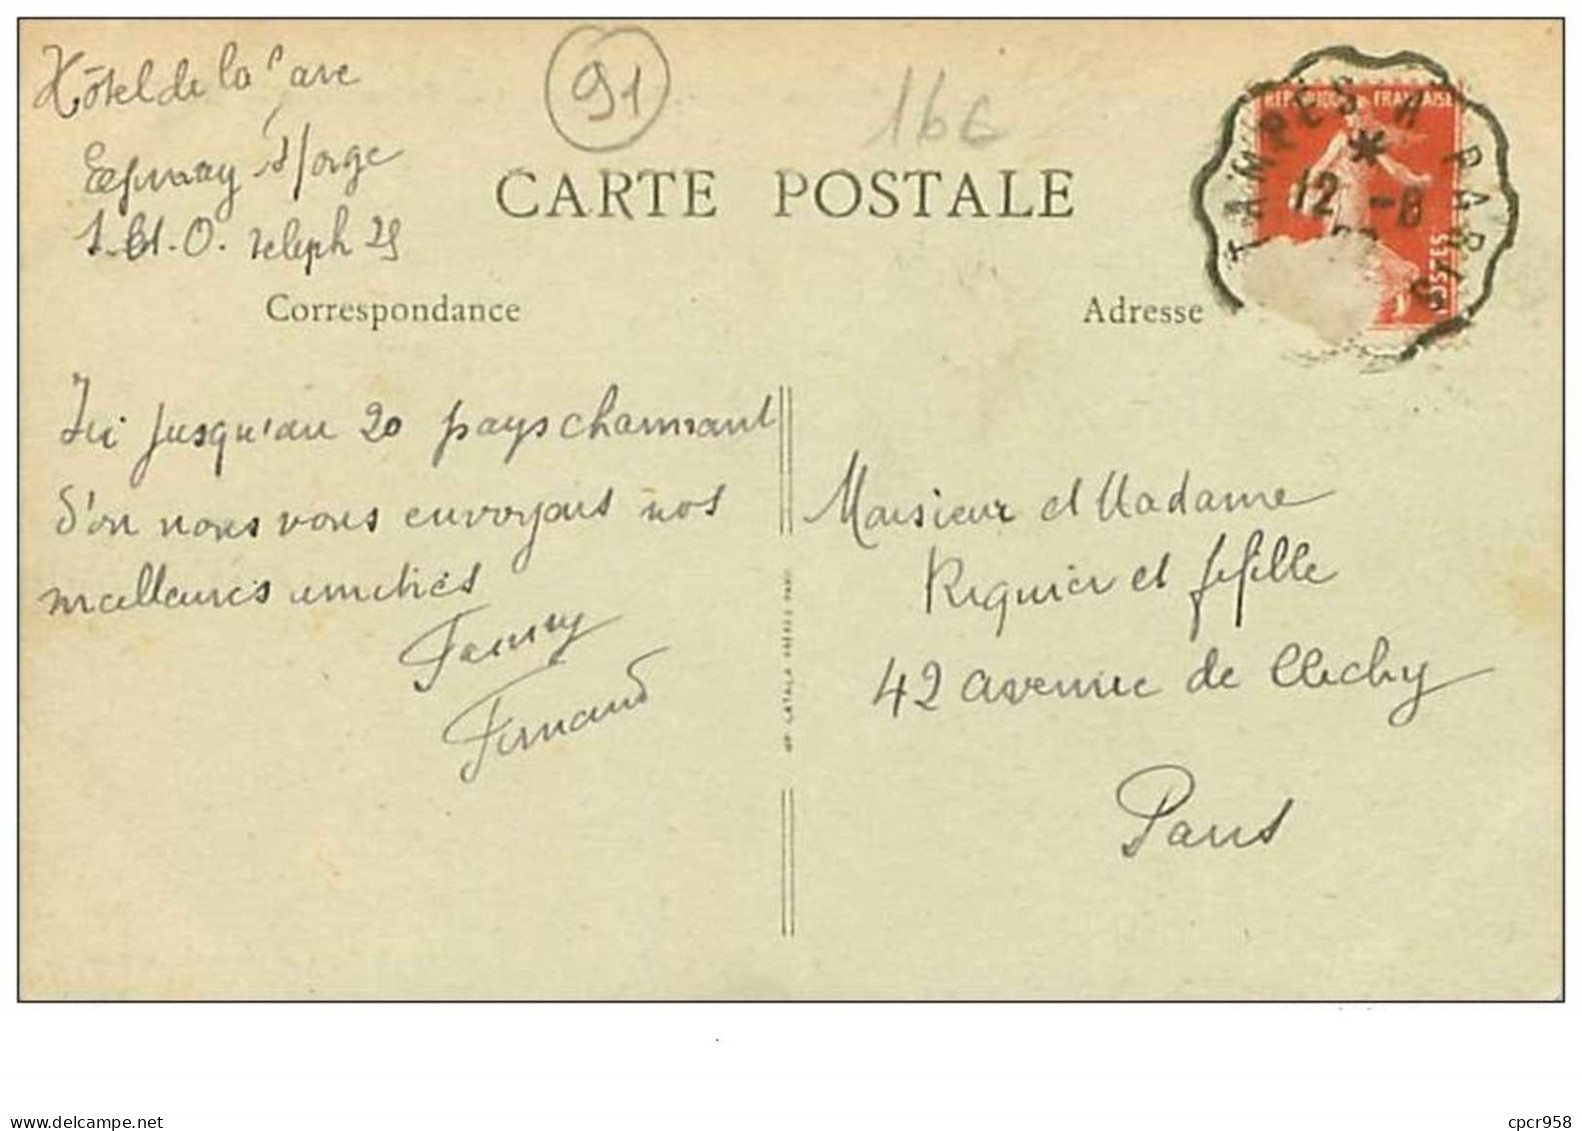 Hôtel de la Gare
Epinay s/orge
S.-et-O. téleph 25
91
166
CARTE POSTALE
REPUBLIQUE FRANÇAISE
POSTES
TAMPES A PARIS
12 -8
Correspondance
Adresse
Ici jusqu'au 20 pays charmant
d'ou nous vous envoyons nos
meilleures amitiés
Fanny
Fernand
IMP. CATALA FRÈRES PARIS
Monsieur et Madame
Riquier et fefille
42 avenue de Clichy
Paris
www.delcampe.net
cpcr958